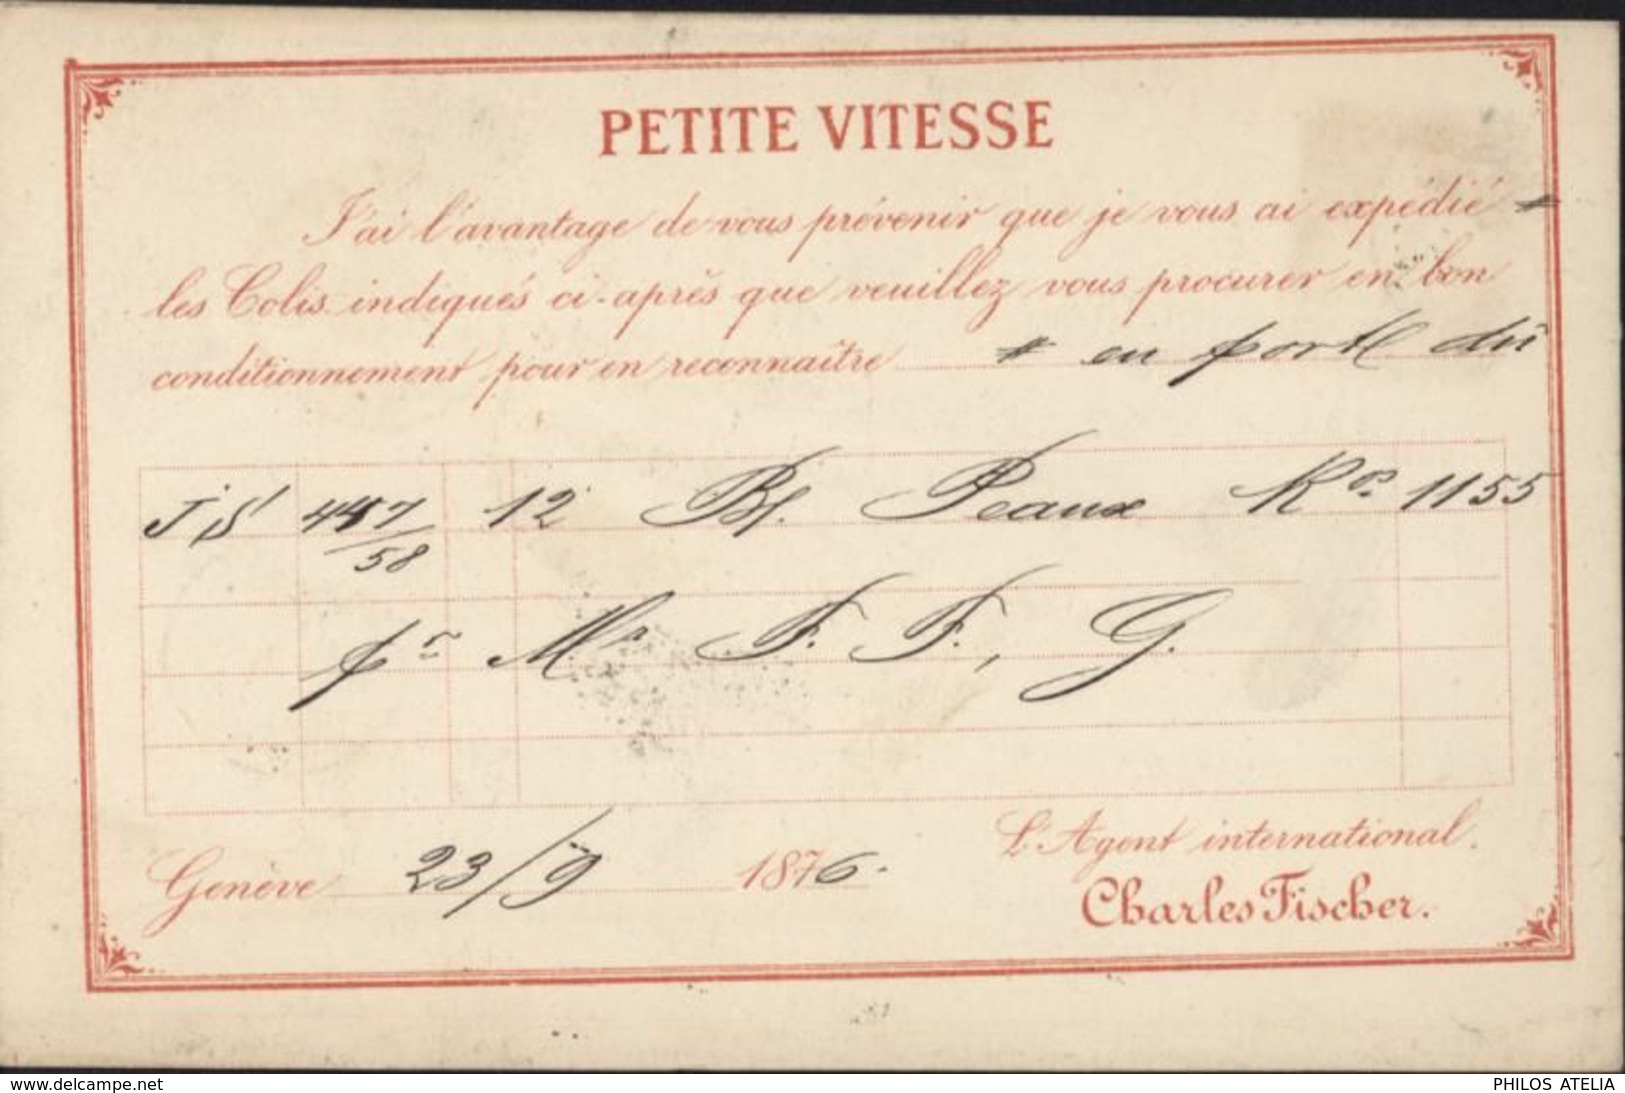 PETITE VITESSE
J'ai l'avantage de vous prévenir que je vous ai expédié #
les Colis indiqués ci-après que veuillez vous procurer en bon
conditionnement pour en reconnaître # en port dû
J S 457/58 12 Bl. Peaux Ko. 1155
pr Mr F. F., G.
Genève 23/9 1876.
L'Agent international.
Charles Fischer.
www.delcampe.net
PHILOS ATELIA